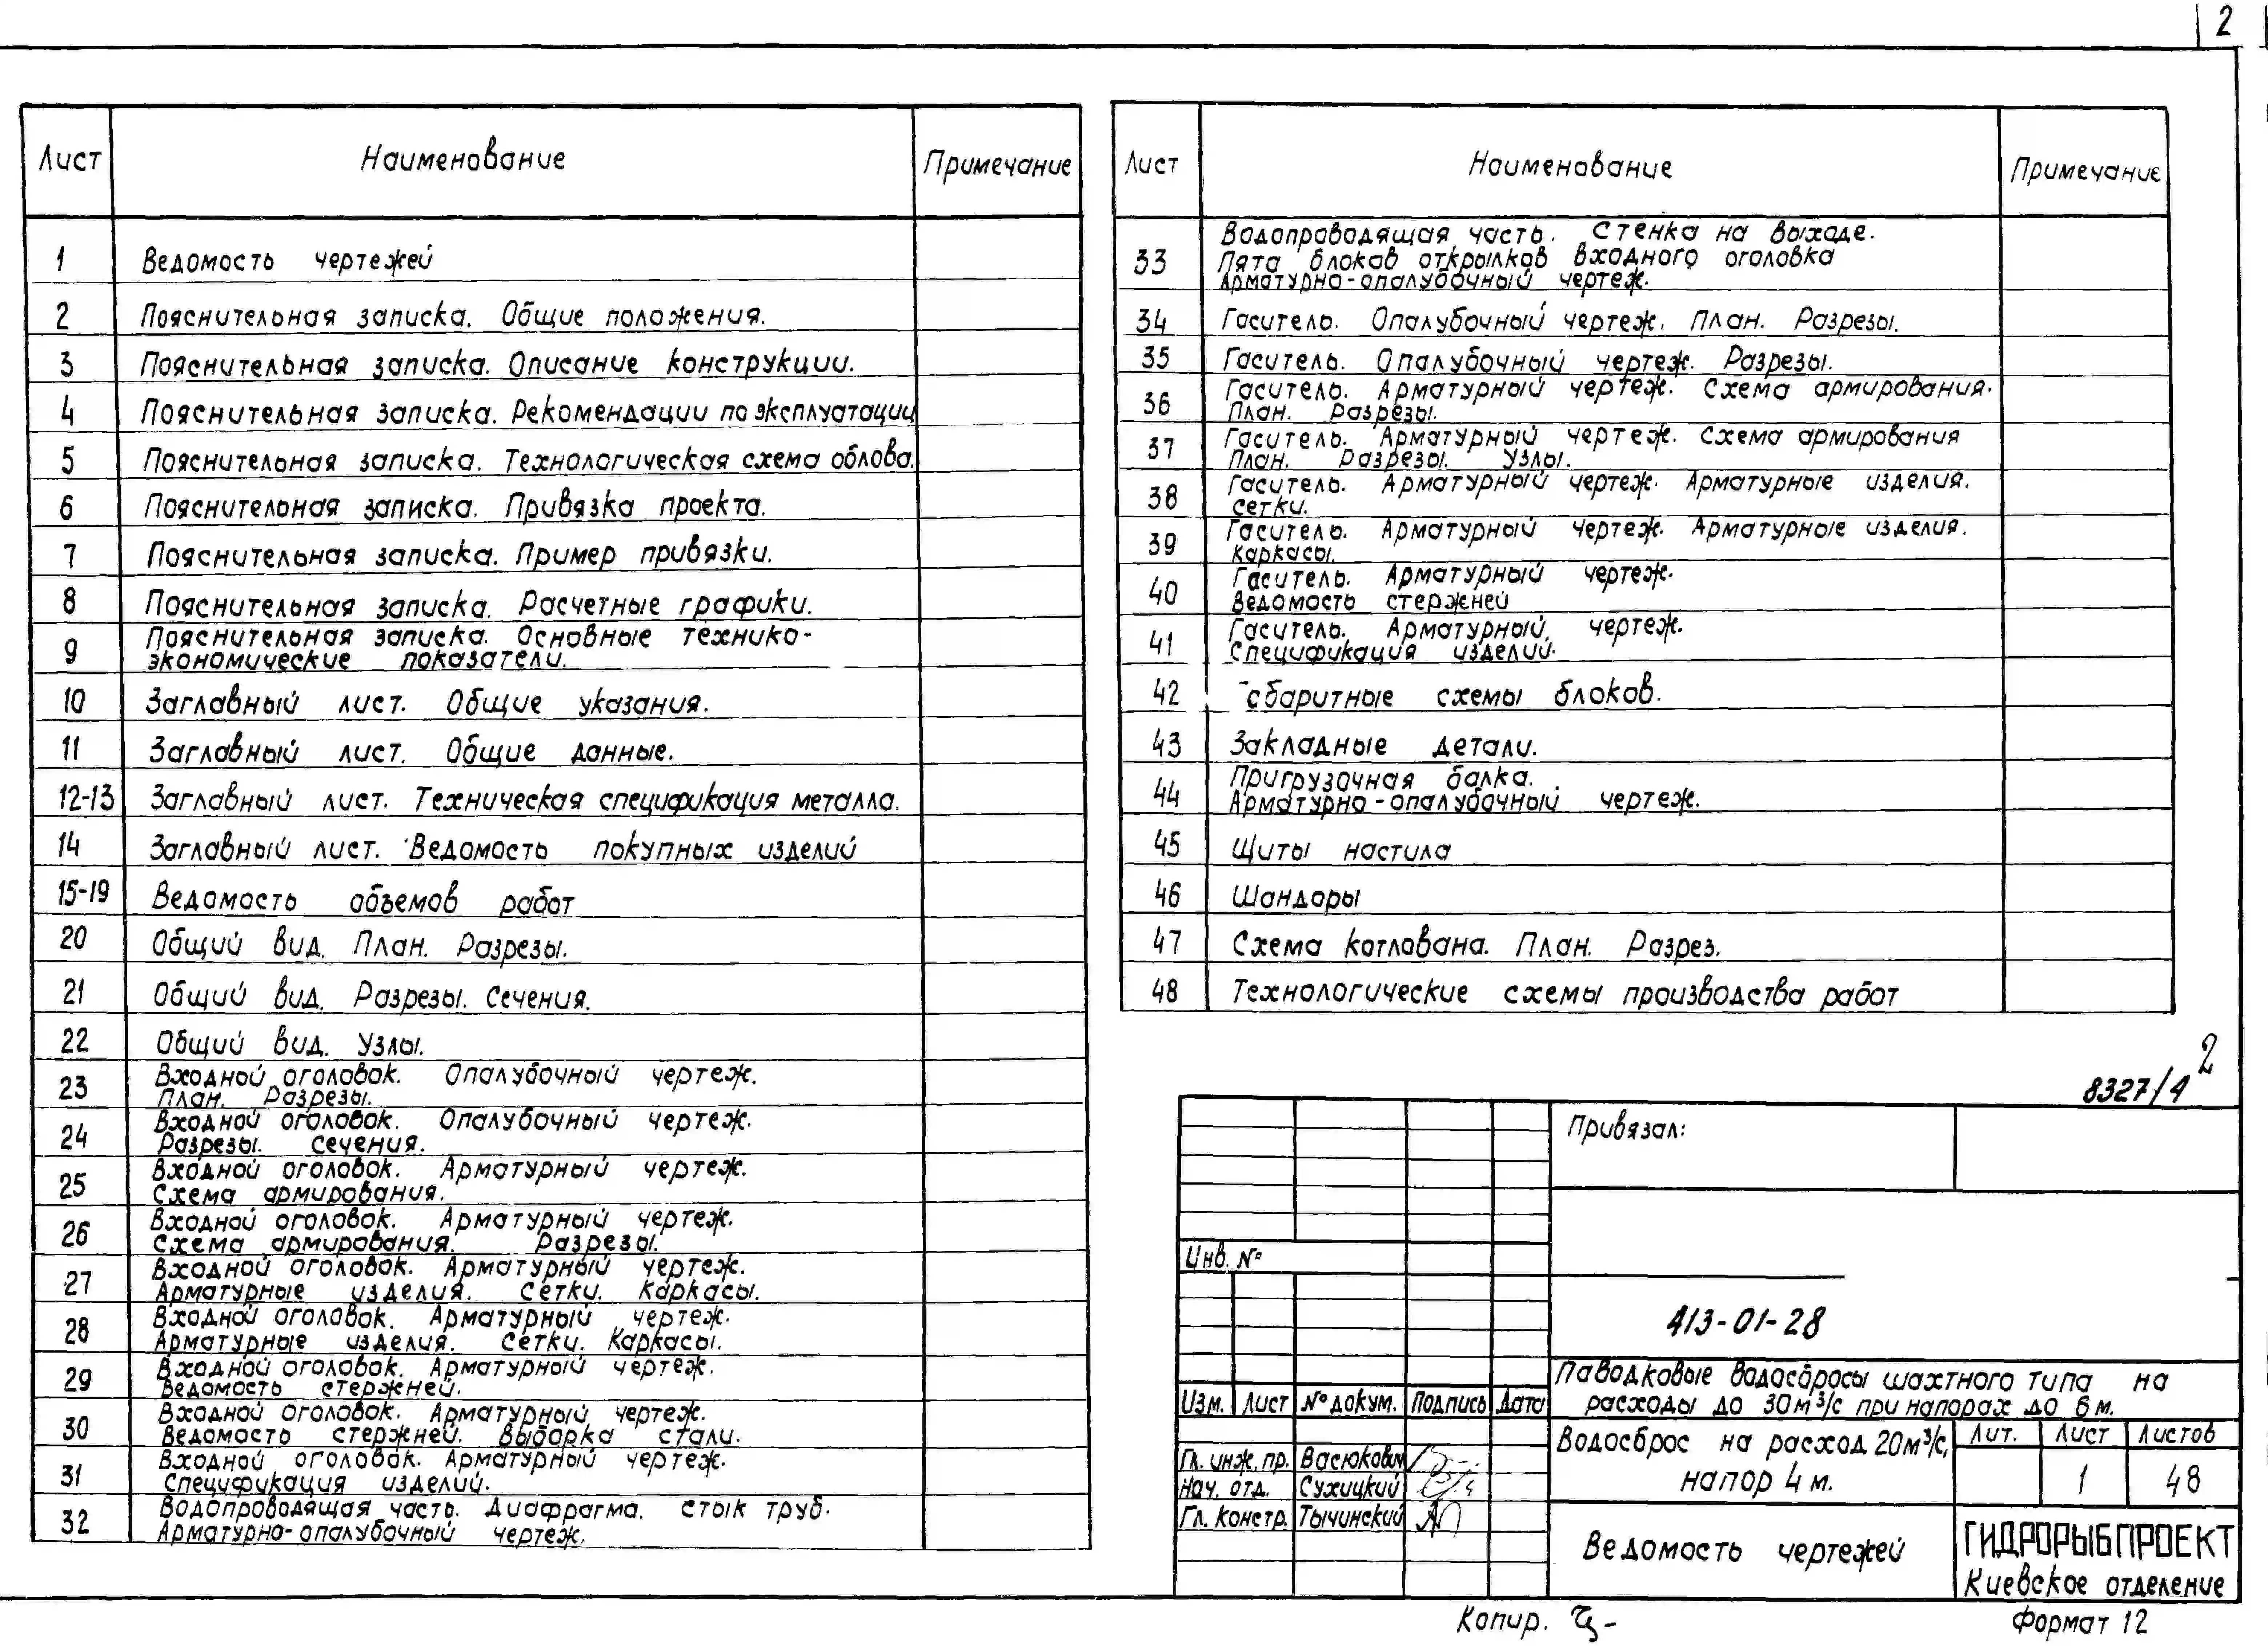 2
Лист Наименование Примечание
1 Ведомость чертежей
2 Пояснительная записка. Общие положения.
3 Пояснительная записка. Описание конструкции.
4 Пояснительная записка. Рекомендации по эксплуатации
5 Пояснительная записка. Технологическая схема облова.
6 Пояснительная записка. Привязка проекта.
7 Пояснительная записка. Пример привязки.
8 Пояснительная записка. Расчетные графики.
9 Пояснительная записка. Основные технико-
экономические показатели.
10 Заглавный лист. Общие указания.
11 Заглавный лист. Общие данные.
12-13 Заглавный лист. Техническая спецификация металла.
14 Заглавный лист. Ведомость покупных изделий
15-19 Ведомость объемов работ
20 Общий вид. План. Разрезы.
21 Общий вид. Разрезы. Сечения.
22 Общий вид. Узлы.
23 Входной оголовок. Опалубочный чертеж.
План. Разрезы.
24 Входной оголовок. Опалубочный чертеж.
Разрезы. Сечения.
25 Входной оголовок. Арматурный чертеж.
Схема армирования.
26 Входной оголовок. Арматурный чертеж.
Схема армирования. Разрезы.
27 Входной оголовок. Арматурный чертеж.
Арматурные изделия. Сетки. Каркасы.
28 Входной оголовок. Арматурный чертеж.
Арматурные изделия. Сетки. Каркасы.
29 Входной оголовок. Арматурный чертеж.
Ведомость стержней.
30 Входной оголовок. Арматурный чертеж.
Ведомость стержней. Выборка стали.
31 Входной оголовок. Арматурный чертеж.
Спецификация изделий.
32 Водопроводящая часть. Диафрагма. Стык труб.
Арматурно-опалубочный чертеж.
Лист Наименование Примечание
33 Водопроводящая часть. Стенка на выходе.
Пята блоков открылков входного оголовка
Арматурно-опалубочный чертеж.
34 Гаситель. Опалубочный чертеж. План. Разрезы.
35 Гаситель. Опалубочный чертеж. Разрезы.
36 Гаситель. Арматурный чертеж. Схема армирования.
План. Разрезы.
37 Гаситель. Арматурный чертеж. Схема армирования
План. Разрезы. Узлы.
38 Гаситель. Арматурный чертеж. Арматурные изделия.
Сетки.
39 Гаситель. Арматурный чертеж. Арматурные изделия.
Каркасы.
40 Гаситель. Арматурный чертеж.
Ведомость стержней
41 Гаситель. Арматурный чертеж.
Спецификация изделий.
42 схемы блоков.
43 Закладные детали.
44 Пригрузочная балка.
Арматурно-опалубочный чертеж.
45 Щиты настила
46 Шандоры
47 Схема котлована. План. Разрез.
48 Технологические схемы производства работ
8327/4 2
Привязал:
Инв. №
413-01-28
Изм. Лист № докум. Подпись Дата
Паводковые водосбросы шахтного типа на
расходы до 30 м³/с при напорах до 6 м.
Гл. инж. пр. Васюкович
Нач. отд. Сухицкий
Гл. констр. Тычинский
Водосброс на расход 20 м³/с,
напор 4 м.
Лит. Лист Листов
1 48
Ведомость чертежей
ГИДРОРЫБПРОЕКТ
Киевское отделение
Копир.
Формат 12